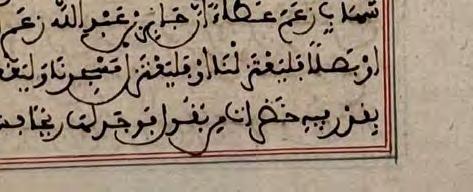 شهاب زعم عطاء ان جابر بن عبد الله زعم
او بصلا فليعتزلنا او فليعتزل مسجدنا وليقع
بقدر فيه خضرات من بقول فوجد لها ريحا فس